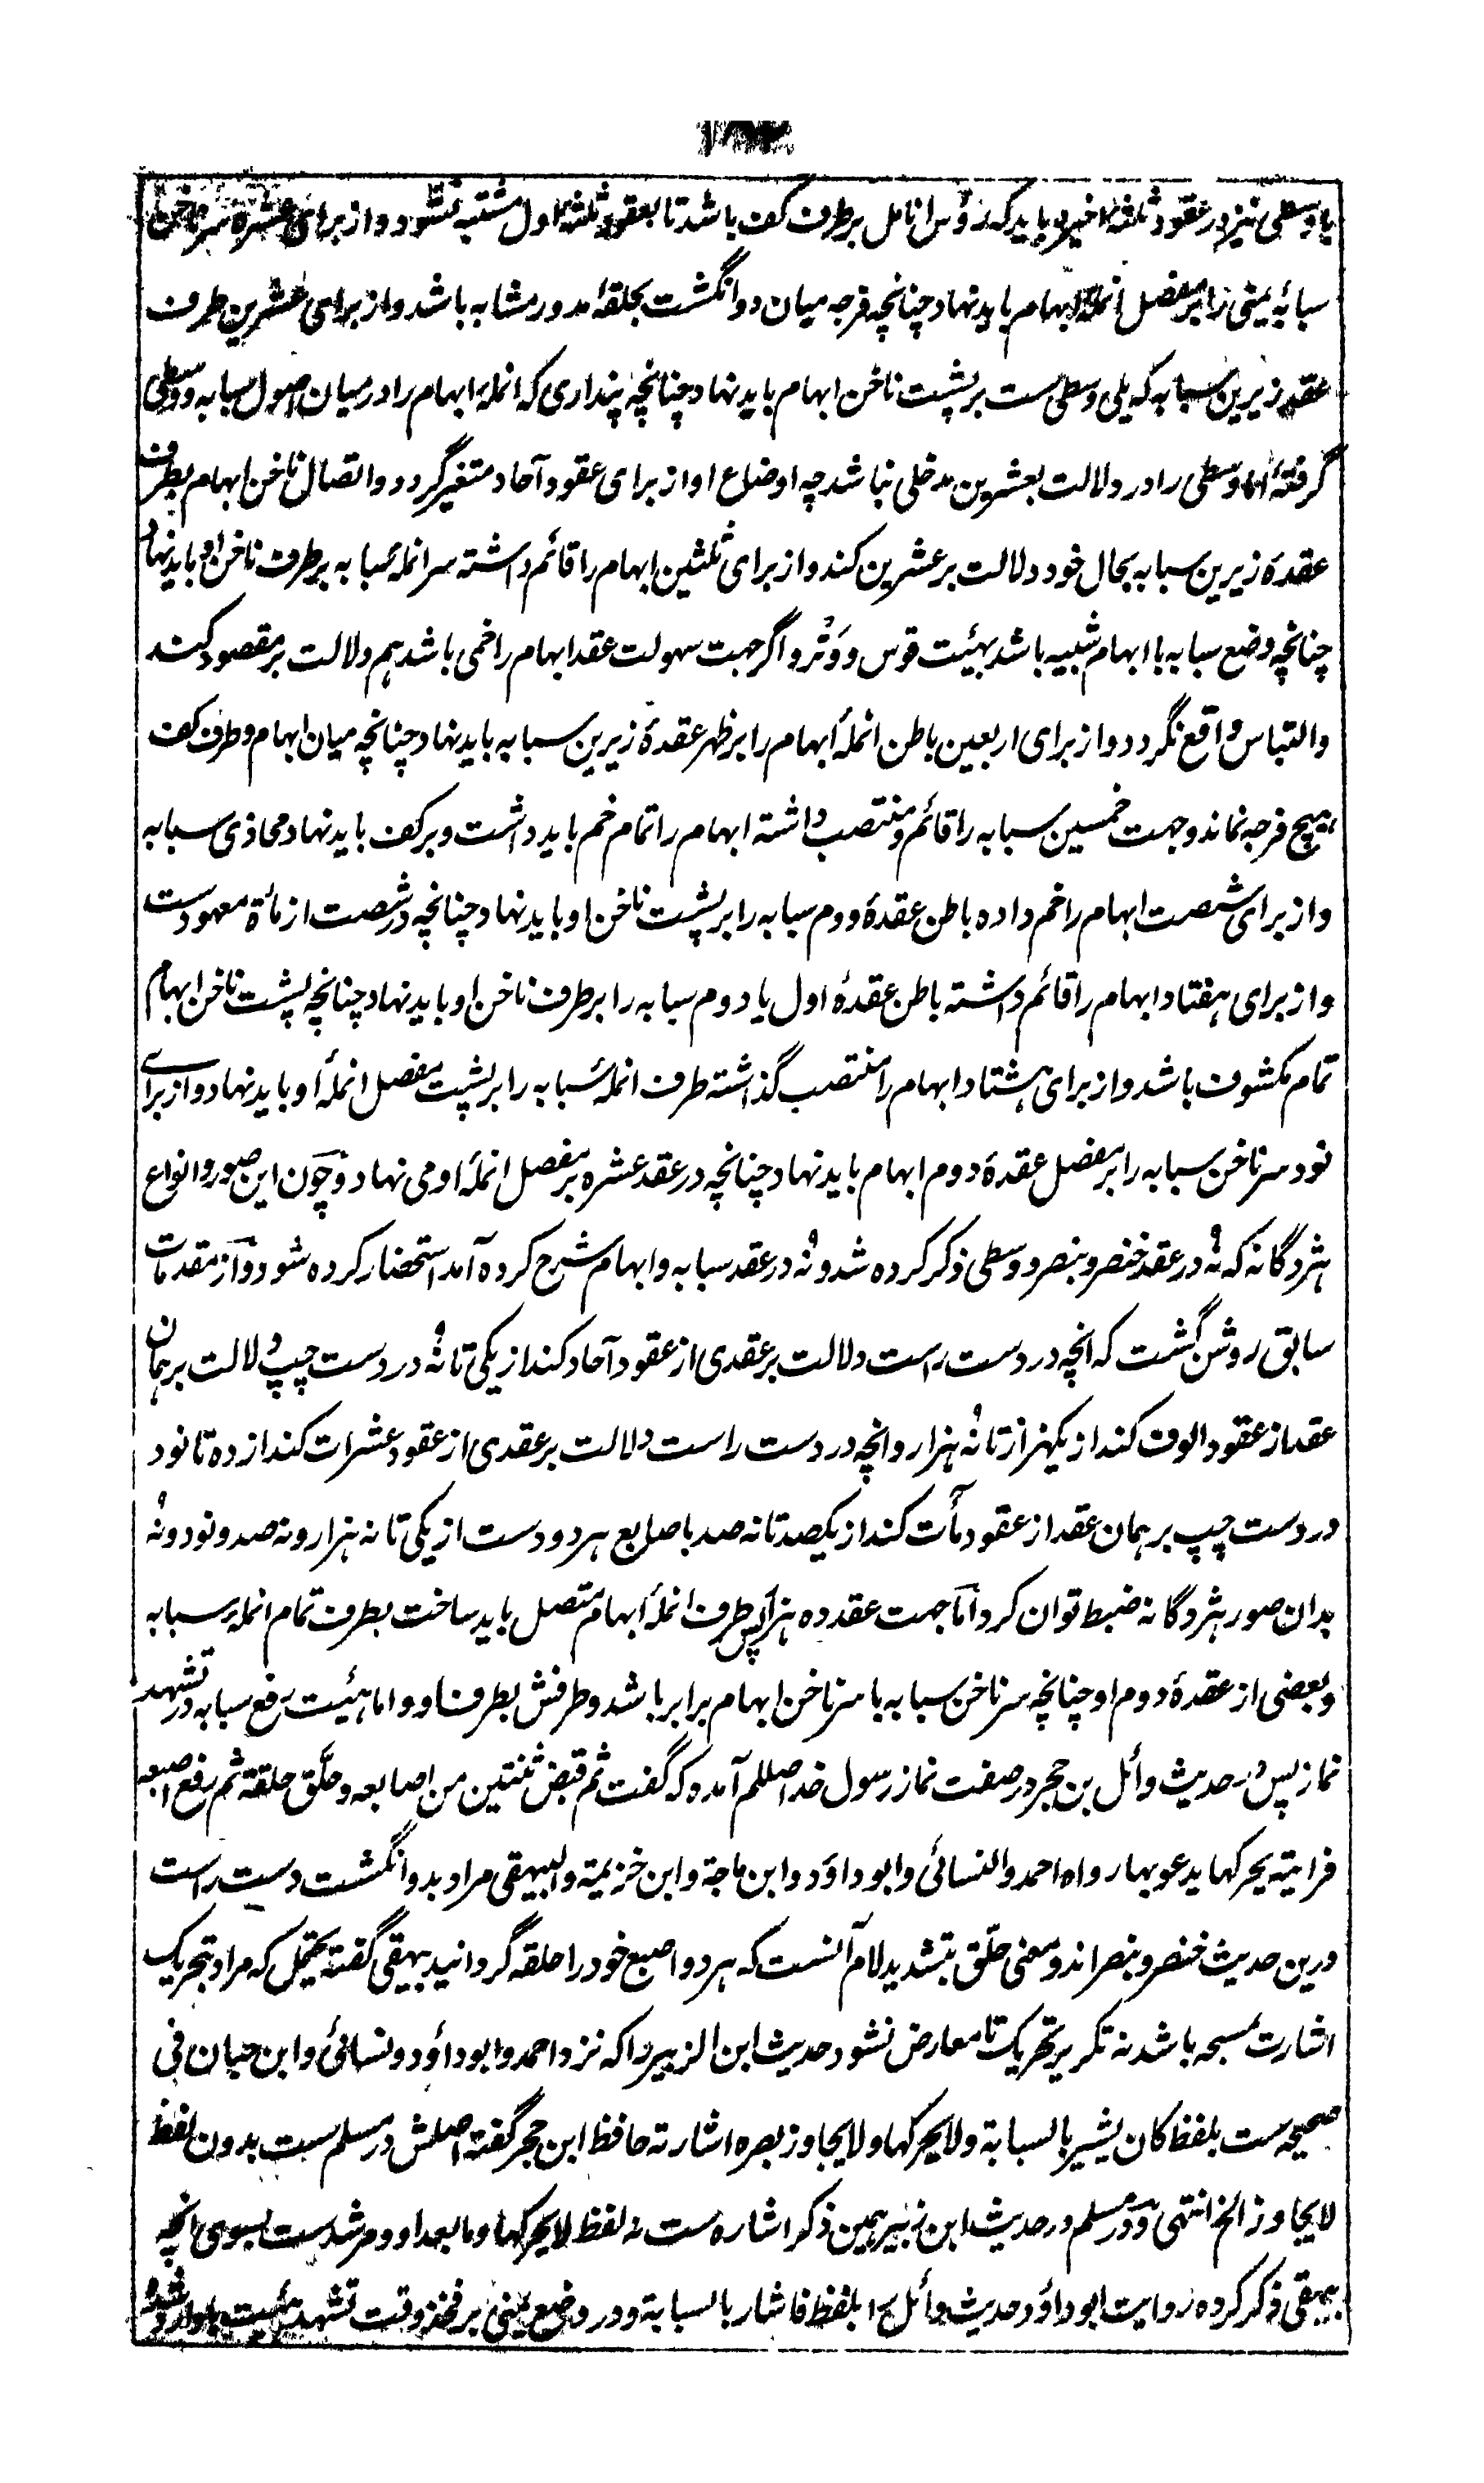 یا وسطی نیز در عقود ثلثهٔ اخیره باید که رؤس انامل بر طرف کف باشد تا بعقود ثلثهٔ اول مشتبه نشود و از برای عشره سر ناخن
سبابهٔ یمنی را بر مفصل انملهٔ ابهام باید نهاد چنانچه فرجه میان دو انگشت بحلقهٔ مدور مشابه باشد و از برای عشرین طرف
عقد زیرین سبابه که یلی وسطی ست بر پشت ناخن ابهام باید نهاد چنانچه پنداری که انملهٔ ابهام را در میان اصول سبابه و وسطی
گرفته اما وسطی را در دلالت بعشرین مدخلی نباشد چه اوضاع او از برای عقود آحاد متغیر گردد و اتصال ناخن ابهام بطرف
عقدهٔ زیرین سبابه بحال خود دلالت بر عشرین کند و از برای ثلثین ابهام را قائم داشته سر انملهٔ سبابه بر طرف ناخن او باید نهاد
چنانچه وضع سبابه با ابهام شبیه باشد بهیئت قوس و وَتْر و اگر جهت سهولت عقد ابهام را خمی باشد هم دلالت بر مقصود کند
والتباس واقع نگردد و از برای اربعین باطن انملهٔ ابهام را بر ظهر عقدهٔ زیرین سبابه باید نهاد چنانچه میان ابهام و طرف کف
هیچ فرجه نماند و جهت خمسین سبابه را قائم و منتصب داشته ابهام را تمام خم باید داشت و بر کف باید نهاد محاذی سبابه
و از برای شصت ابهام را خم داده باطن عقدهٔ دوم سبابه را بر پشت ناخن او باید نهاد چنانچه در شصت از مائة معهودست
و از برای هفتاد ابهام را قائم داشته باطن عقدهٔ اول یا دوم سبابه را بر طرف ناخن او باید نهاد چنانچه پشت ناخن ابهام
تمام مکشوف باشد و از برای هشتاد ابهام را منتصب گذاشته طرف انملهٔ سبابه را بر پشت مفصل انملهٔ او باید نهاد و از برای
نود سر ناخن سبابه را بر مفصل عقدهٔ دوم ابهام باید نهاد چنانچه در عقد عشره بر مفصل انملهٔ او می نهاد و چون این صور و انواع
هژدگانه که نُه در عقد خنصر و بنصر و وسطی ذکر کرده شد و نُه در عقد سبابه و ابهام شرح کرده آمد استحضار کرده شود و از مقدمات
سابق روشن گشت که انچه در دست راست دلالت بر عقدی از عقود آحاد کند از یکی تا نُه در دست چپ دلالت بر همان
عقد از عقود الوف کند از یکهزار تا نُه هزار و انچه در دست راست دلالت بر عقدی از عقود عشرات کند از ده تا نود
در دست چپ بر همان عقد از عقود مآت کند از یکصد تا نه صد باصابع هر دو دست از یکی تا نه هزار و نه صد و نود و نُه
بدان صور هژدگانه ضبط توان کرد اما جهت عقد ده هزار پس طرف انملهٔ ابهام متصل باید ساخت بطرف تمام انملهٔ سبابه
و بعضی از عقدهٔ دوم او چنانچه سر ناخن سبابه با سر ناخن ابهام برابر باشد و طرفش بطرف او و اما هیئت رفع سبابه در تشهد
نماز پس در حدیث وائل بن حجر در صفت نماز رسول خدا صللم آمده که گفت ثم قبض ثنتین من اصابعه و حلّق حلقة ثم رفع اصبعه
فرایته یحرکها یدعو بها رواه احمد والنسائی وابو داؤد وابن ماجة وابن خزیمة والبیهقی مراد بدو انگشت دست راست
درین حدیث خنصر و بنصر اند و معنی حلّق بتشدید لام آنست که هر دو اصبع خود را حلقه گردانید بیهقی گفته یحتمل که مراد بتحریک
اشارت مسبحه باشد نه تکریر تحریک تا معارض نشود حدیث ابن الزبیر را که نزد احمد وابو داؤد ونسائی وابن حبان فی
صحیحه ست بلفظ کان یشیر بالسبابة ولا یحرکها ولا یجاوز بصره اشارته حافظ ابن حجر گفته اصلش در مسلم ست بدون لفظ
لا یجاوز الخ انتهی و در مسلم در حدیث ابن زبیر همین ذکر اشاره ست نه لفظ لا یحرکها وما بعد او و مرشد ست بسوی انچه
بیهقی ذکر کرده روایت ابو داؤد حدیث وائل را بلفظ فاشار بالسبابة و در وضع یمنی بر فخذ وقت تشهد